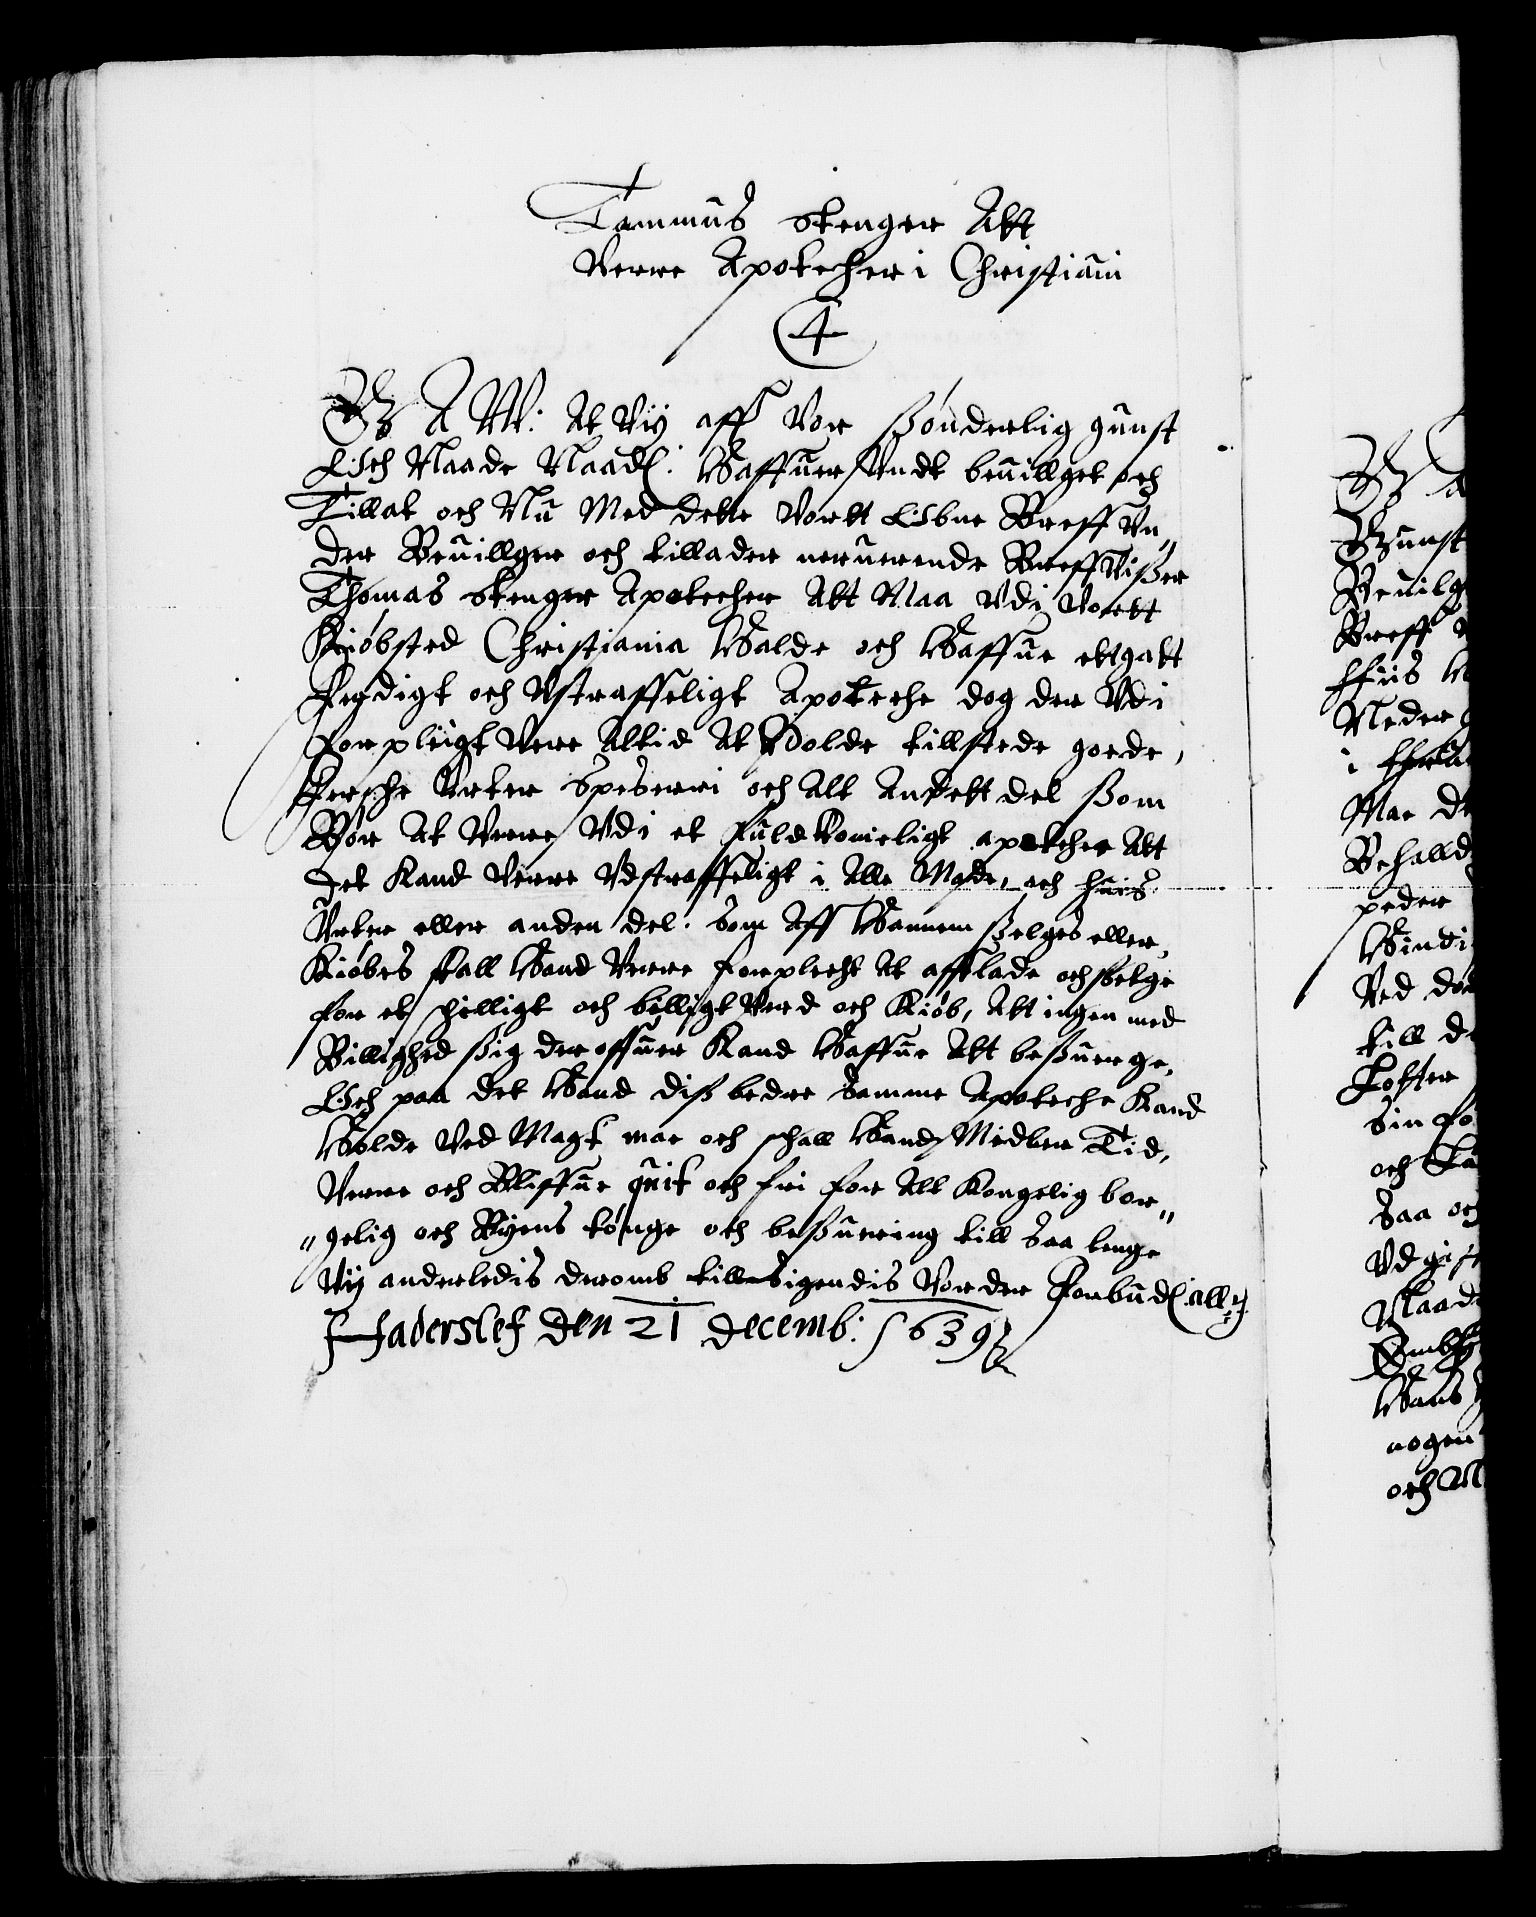 Tammus stenger Att
Verre Apotecher i Christiani
4
G A W: At Vij aff Vor sønderlig gunst
Och Naade Naad: Haffuer Undt beuillget och
Tillat och Nu Med dette Vortt Obne Breff Un„
der Beuillger och tillader neruerende Breff Visser
Thomas stenger Apotecher Att Maa Vdi Vortt
Kiøbsted Christiania Halde och Haffue ettgatt
ferdigt och Vstraffeligt Apoteche dog der Vdi
forpligt Vere Altid At Holde tillstede goede,
fersche Urter Speserri och Alt Andett del som
Bør At Verre Vdi et fuldkomeligt apotecher Att
det Kand Verre Vdstraffeligt i Alle Made, och huis
Urter eller anden del. som Aff Hannem selges eller
Kiøbes skall Hand Verre forplecht At afflade och selge
for et schelligt och billigt Verd och Kiøb, Att ingen med
Billighed sig der offuer Kand Haffue Att besuerge,
Och paa det Hand diss bedre samme Apoteche Kand
Holde Ved Magt maa och schall Hand Midler Tid,
Verre och Bliffue quit och fri for Alt Kongelig bor„
„gelig och Byens tønge och besuering till saa lenge
Vij anderledis deromb tillsigendis Vorder Forbud: all
Haderslef den 21 decemb: 1639

G A
Gunst
Beuilg
Breff
Neder
i
Maa
Behalld
peder
Hindi
Ved
till
sin
och
saa och
Vdgif
Naad
Hans
nogen
och